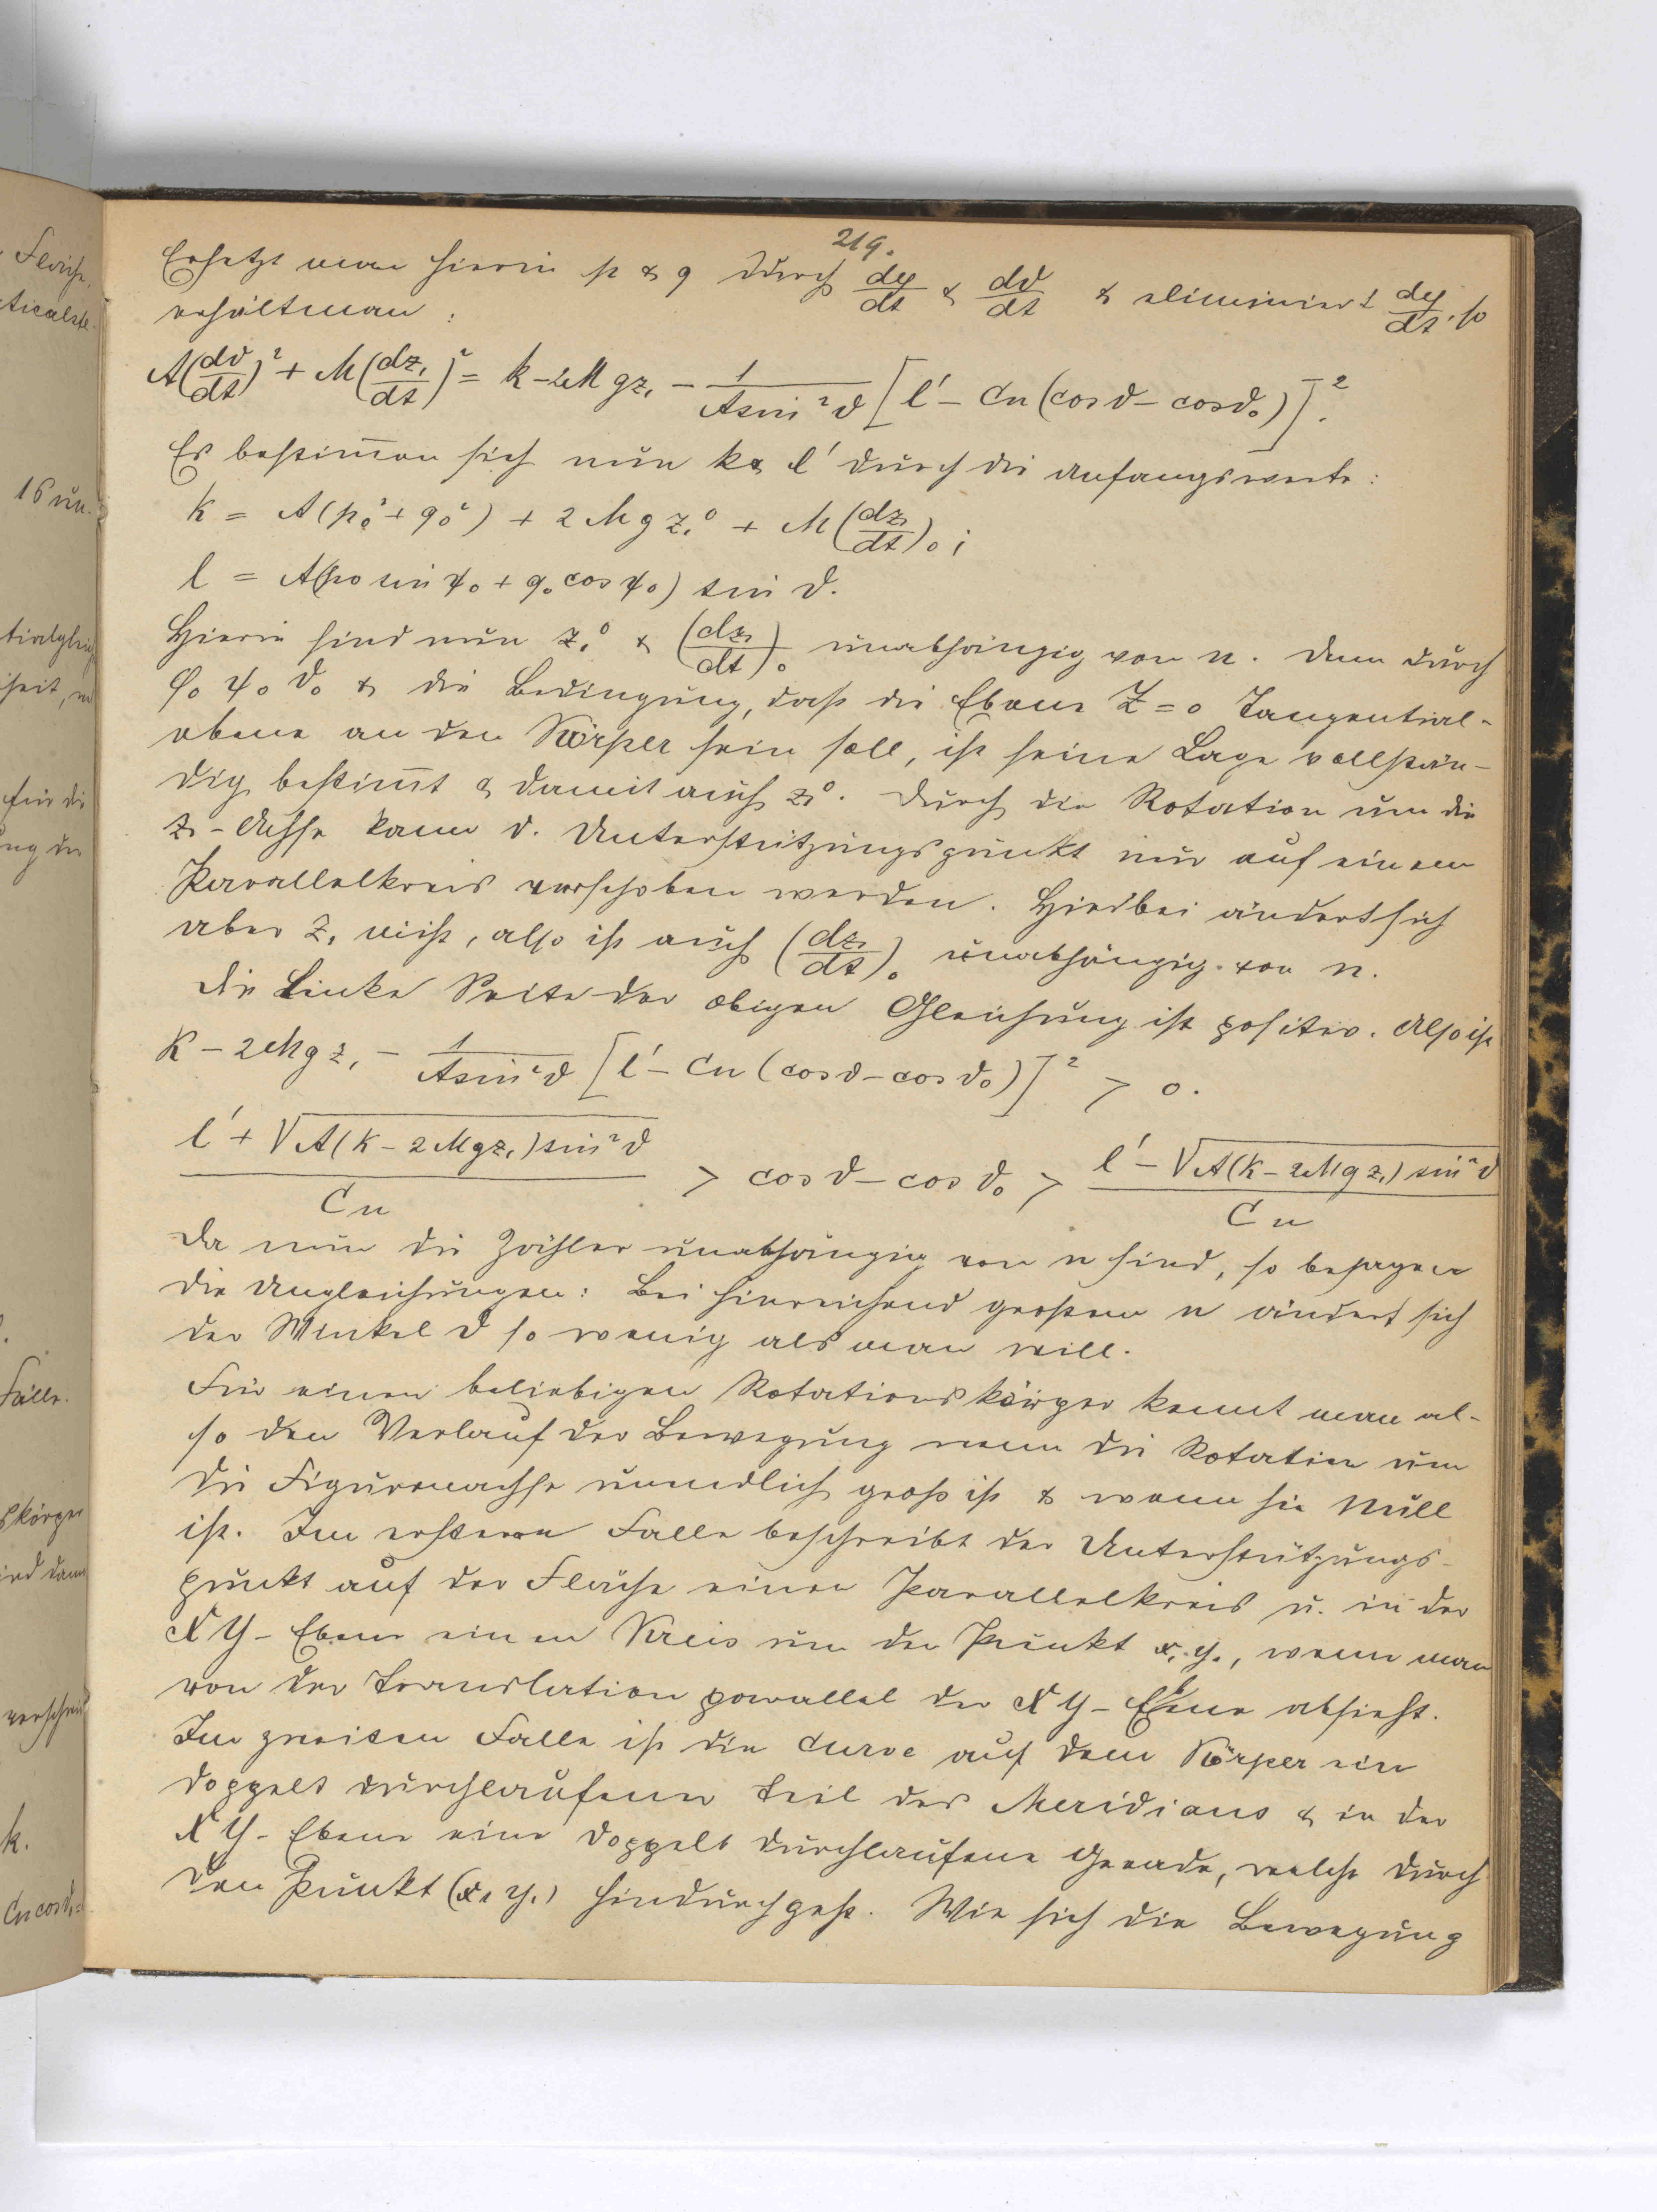 219.
Ersetzt man hierin p & q durch dφ/dt & dϑ/dt & eliminiert dφ/dt, so
erhält man :
A(dϑ/dt)² + M(dz₁/dt)² = k - 2Mgz₁ - 1/(A sin²ϑ) [l' - Cn (cosϑ - cosϑ₀)]².
Es bestim̅en sich nun k & l' durch die Anfangswerte:
k = A(p₀² + q₀²) + 2Mg z₁⁰ + M(dz₁/dt)₀ ;
l = A(p₀ sin ψ₀ + q₀ cos ψ₀) sin ϑ.
Hierin sind nun z₁⁰ & (dz₁/dt)₀ unabhängig von n. Denn durch
φ₀ ψ₀ ϑ₀ & die Bedingung, daß die Ebene Z = 0 Tangential-
ebene an den Körper sein soll, ist seine Lage vollstän-
dig bestim̅t & damit auch z₁⁰. Durch die Rotation um die
z-Achse kann d. Unterstützungspunkt nur auf einem
Parallelkreis verschoben werden. Hierbei ändert sich
aber z₁ nicht, also ist auch (dz₁/dt)₀ unabhängig von n.
Die Linke Seite der obigen Gleichung ist positiv. Also ist
k - 2Mgz₁ - 1/(A sin²ϑ) [l' - Cn (cosϑ - cosϑ₀)]² > 0.
(l' + √A(k - 2Mgz₁) sin²ϑ)/Cn > cosϑ - cosϑ₀ > (l' - √A(k - 2Mgz₁) sin²ϑ)/Cn
Da nun die Zähler unabhängig von n sind, so besagen
die Ungleichungen: Bei hinreichend großem n ändert sich
der Winkel ϑ so wenig als man will.
Für einen beliebigen Rotationskörper kennt man al-
so den Verlauf der Bewegung wenn die Rotation um
die Figurenachse unendlich groß ist & wenn sie Null
ist. Im ersteren Falle beschreibt der Unterstützungs-
punkt auf der Fläche einen Parallelkreis u. in der
XY-Ebene einen Kreis um den Punkt x₁ y₁, wenn man
von der Translation parallel der XY-Ebene absieht.
Im zweiten Falle ist die Curve auf dem Körper ein
doppelt durchlaufener Teil des Meridians & in der
XY-Ebene eine doppelt durchlaufene Gerade, welche durch
den Punkt (x₁ y₁) hindurchgeht. Wie sich die Bewegung